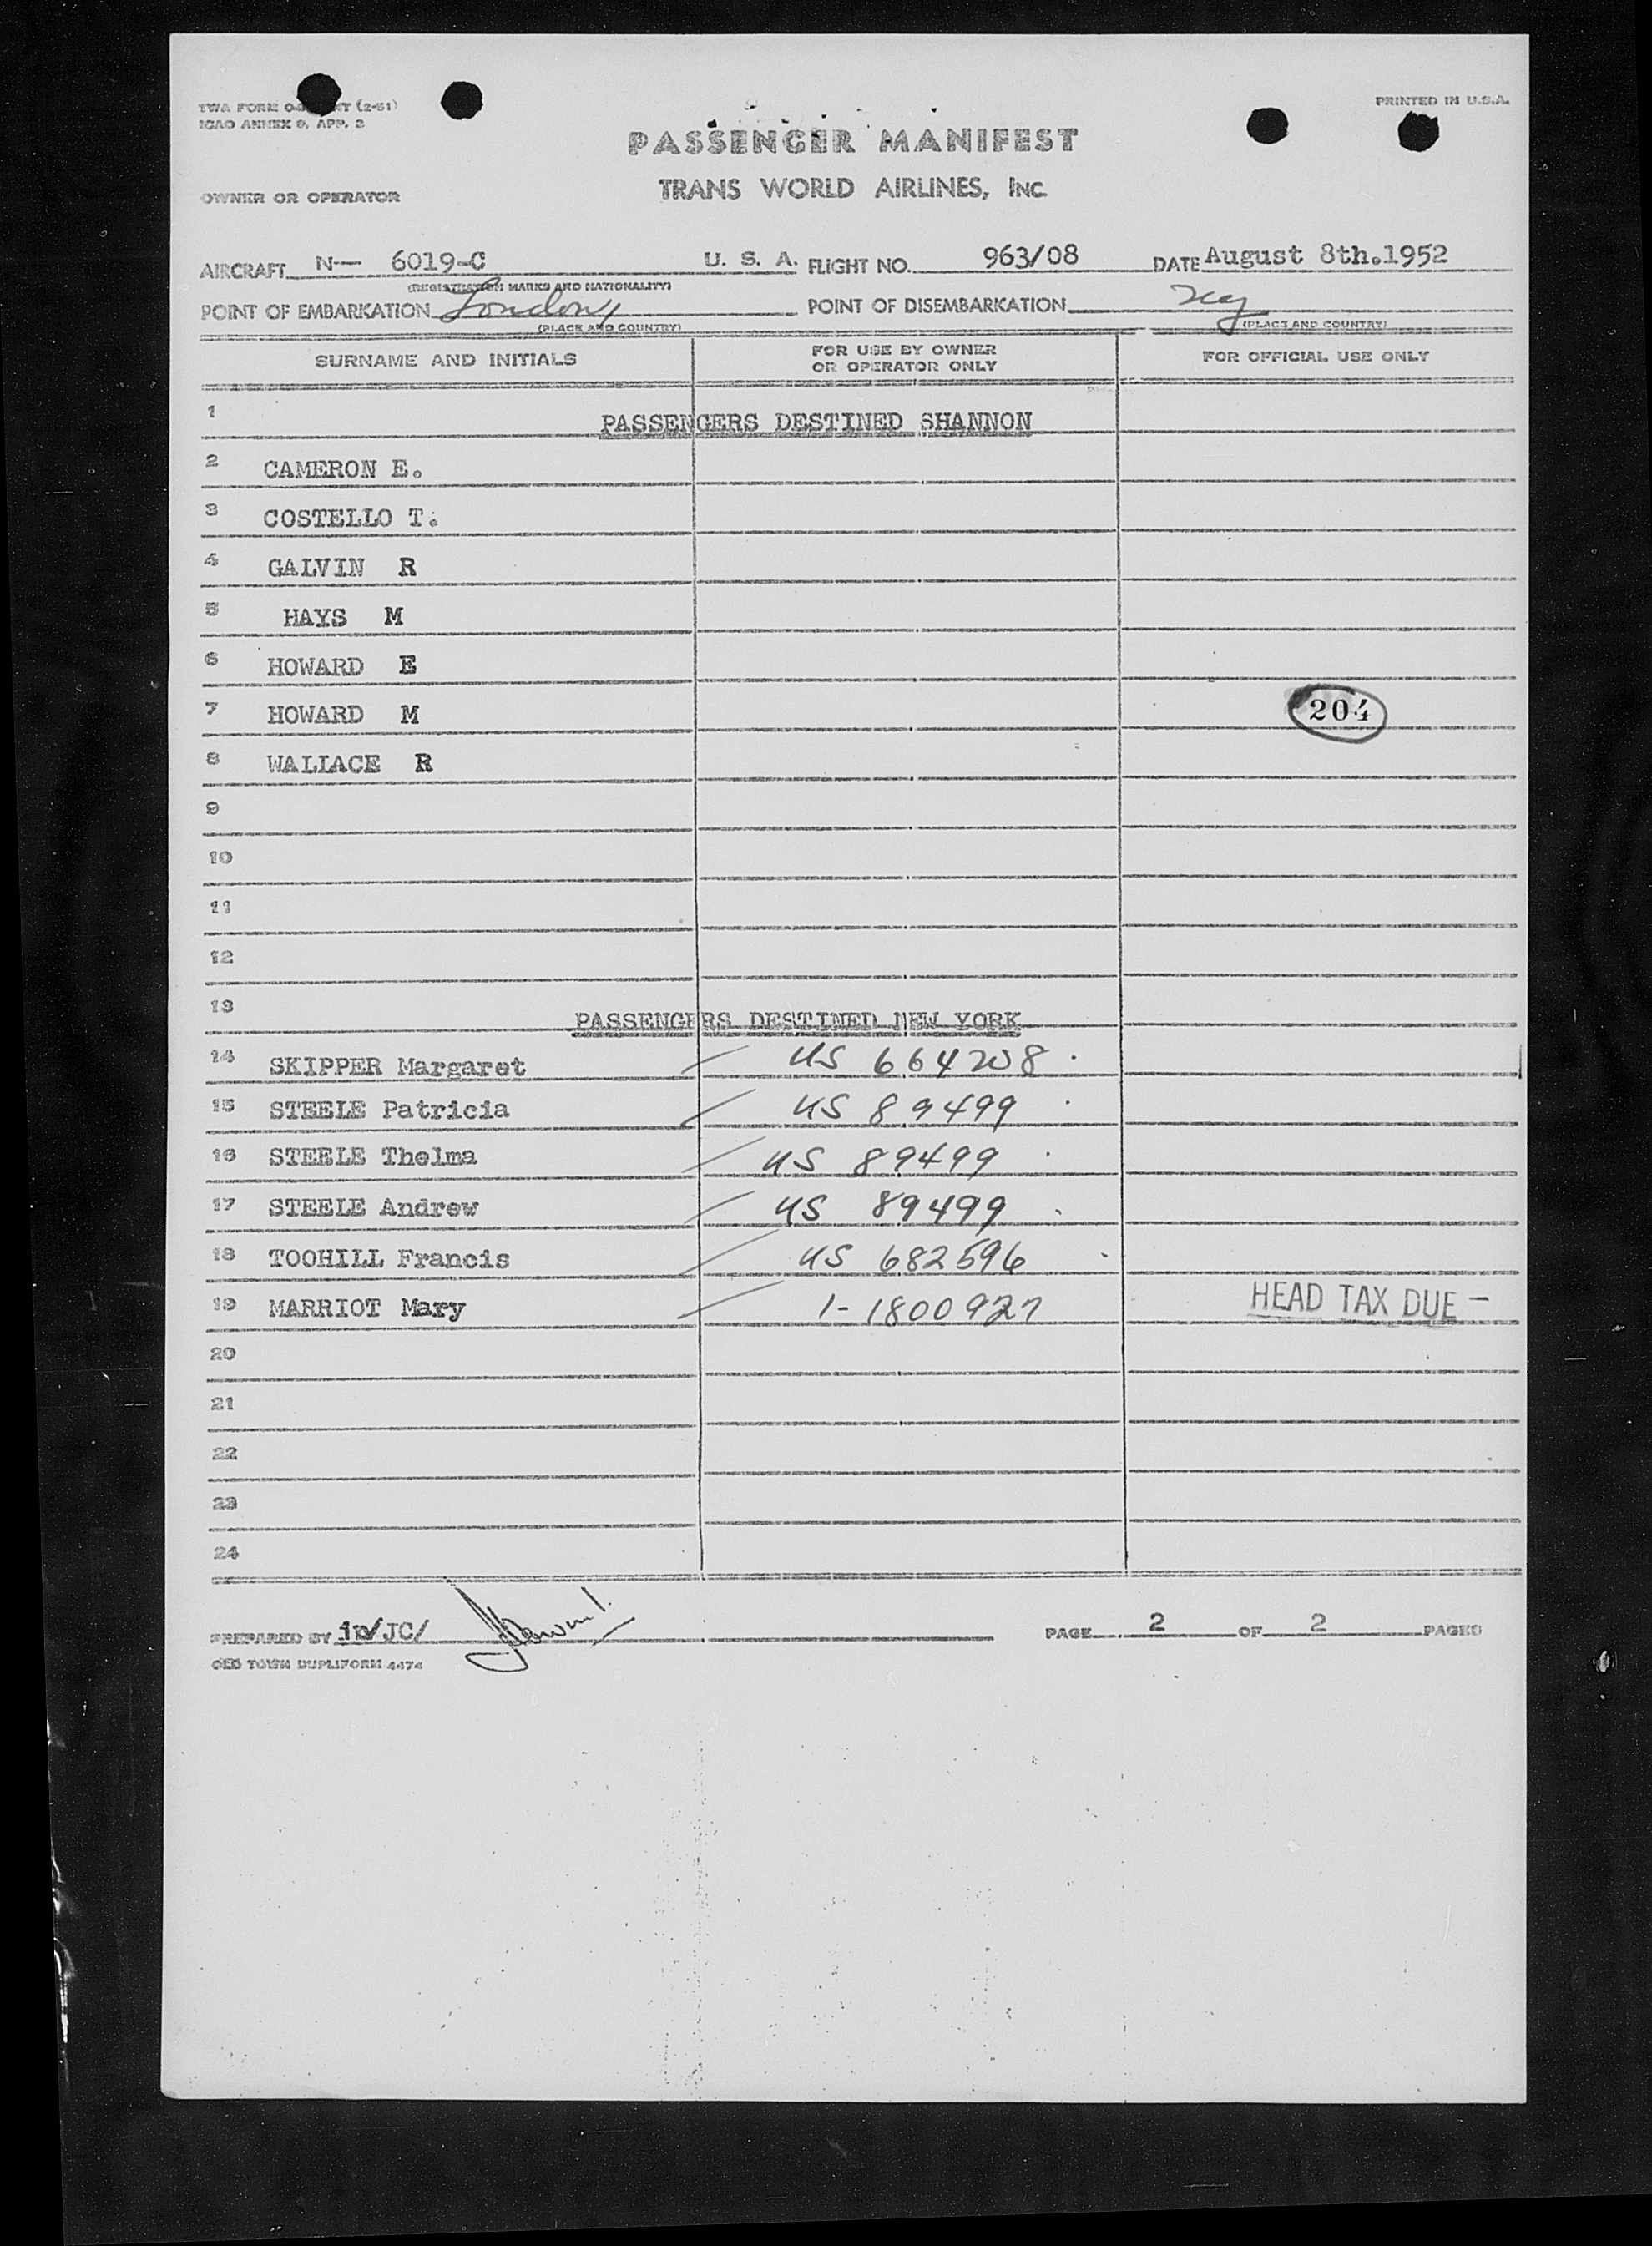 TWA FORM O- NT (2-51)
ICAO ANNEX 9, APP. 2
PRINTED IN U.S.A.
PASSENGER MANIFEST
TRANS WORLD AIRLINES, INC.
OWNER OR OPERATOR
AIRCRAFT N— 6019-C U. S. A. FLIGHT NO. 963/08 DATE August 8th.1952
(REGISTRATION MARKS AND NATIONALITY)
POINT OF EMBARKATION London POINT OF DISEMBARKATION
(PLACE AND COUNTRY) (PLACE AND COUNTRY)
SURNAME AND INITIALS FOR USE BY OWNER OR OPERATOR ONLY FOR OFFICIAL USE ONLY
1 PASSENGERS DESTINED SHANNON
2 CAMERON E.
3 COSTELLO T.
4 GALVIN R
5 HAYS M
6 HOWARD E
7 HOWARD M 204
8 WALLACE R
9
10
11
12
13 PASSENGERS DESTINED NEW YORK
14 SKIPPER Margaret US 664208
15 STEELE Patricia US 89499
16 STEELE Thelma US 89499
17 STEELE Andrew US 89499
18 TOOHILL Francis US 682596
19 MARRIOT Mary 1-1800927 HEAD TAX DUE -
20
21
22
23
24
PREPARED BY ip/JC/ PAGE 2 OF 2 PAGES
OLD TOWN DUPLIFORM 4474